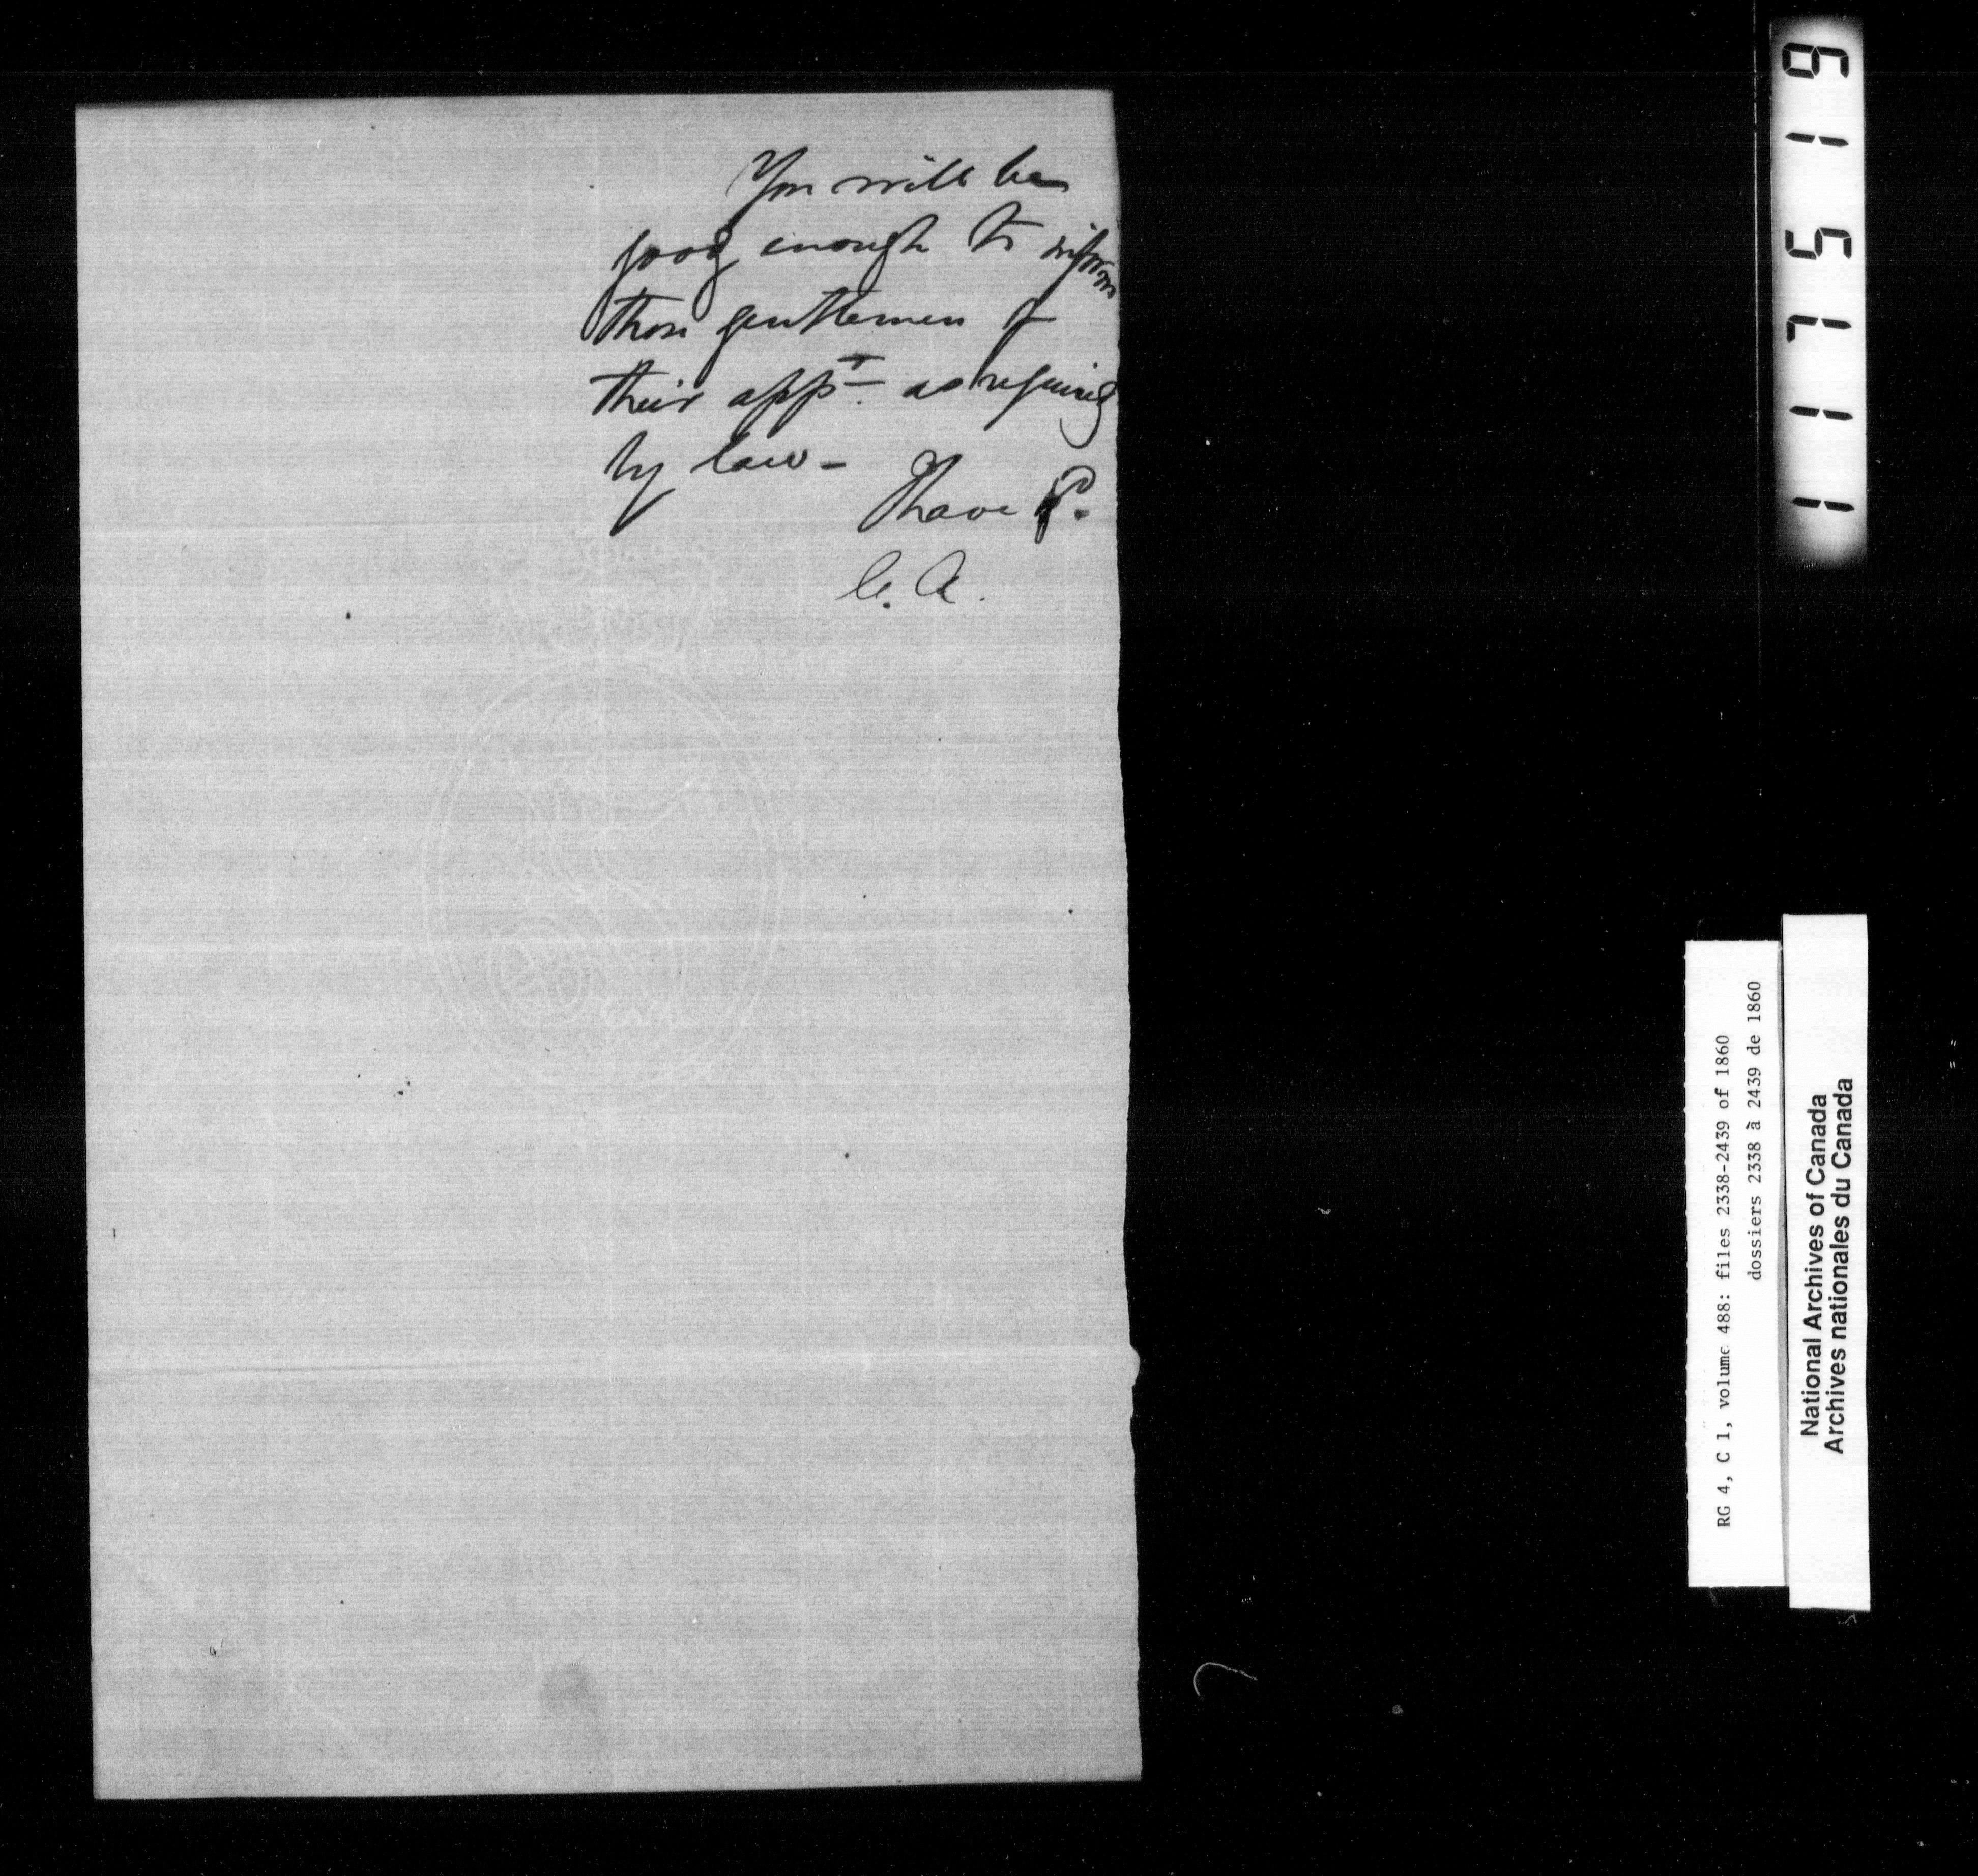 You will be
good enough to inform
those gentlemen of
their appt. as required
by law -
I have
C. A.
117519
RG 4, C 1, volume 488: files 2338-2439 of 1860
dossiers 2338 à 2439 de 1860
National Archives of Canada
Archives nationales du Canada